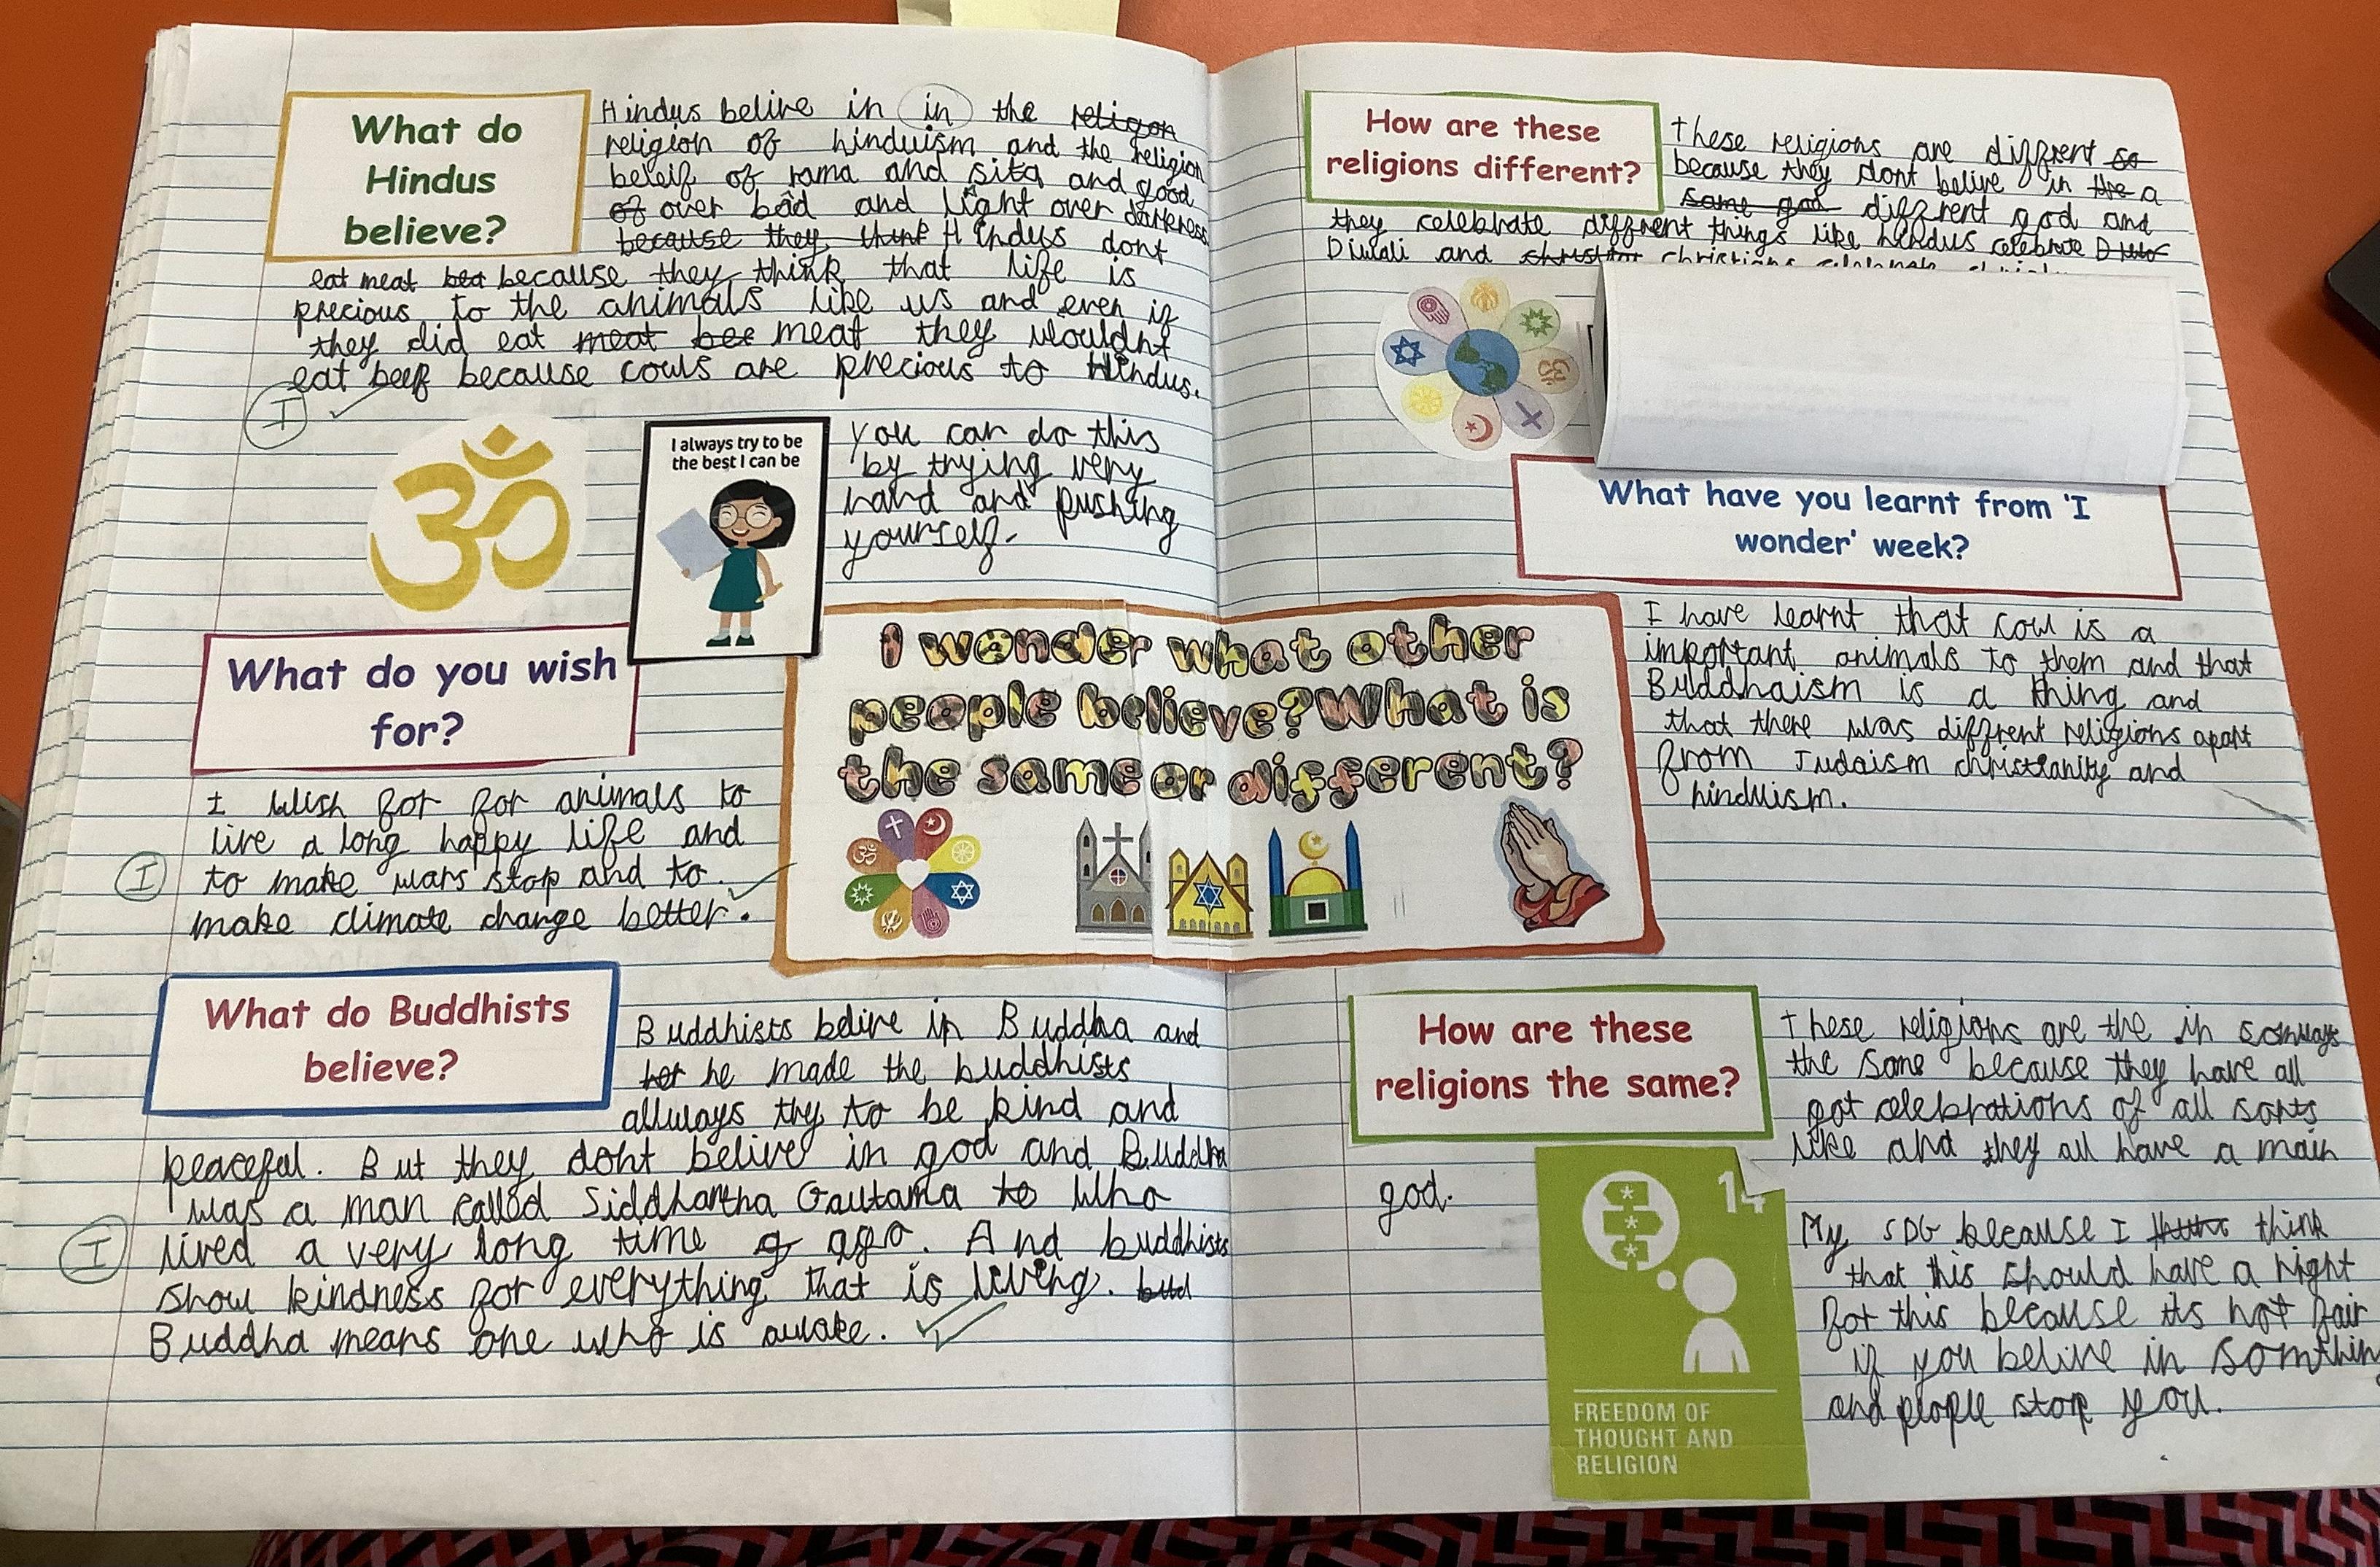 What do
Hindus
believe?
Hindus belive in in the religon
religion of hinduism and the religion
beleif of rama and sita and good
of over bad and light over darkness
because they think Hindus dont
eat meat bea because they think that life is
precious to the animals like us and even if
they did eat meat bee meat they wouldnt
eat beef because cows are precious to Hindus.
I
I always try to be
the best I can be
You can do this
by trying very
hard and pushing
yourself.
What do you wish
for?
I wish for for animals to
live a long happy life and
I
to make wars stop and to
make climate change better.
What do Buddhists
believe?
Buddhists belive in Buddha and
he made the buddhists
allways try to be kind and
peaceful. But they dont belive in god and Buddha
was a man called Siddhartha Gautama to who
I
lived a very long time ago. And buddhists
show kindness for everything that is living. bud
Buddha means one who is awake.
I wonder what other
people believe? What is
the same or different?
How are these
religions different?
These religions are diffrent so
because they dont belive in the a
same god diffrent god and
they celebrate diffrent things like hindus celebrate
Diwali and christians celebrate
What have you learnt from 'I
wonder' week?
I have learnt that cow is a
important animals to them and that
Buddhaism is a thing and
that there was diffrent religions apart
from Judaism christianity and
hinduism.
How are these
religions the same?
These religions are the in somways
the same because they have all
got celebrations of all sorts
like and they all have a main
god.
14
FREEDOM OF
THOUGHT AND
RELIGION
My SDG because I think
that this should have a right
for this because its not fair
if you belive in somthing
and people stop you.